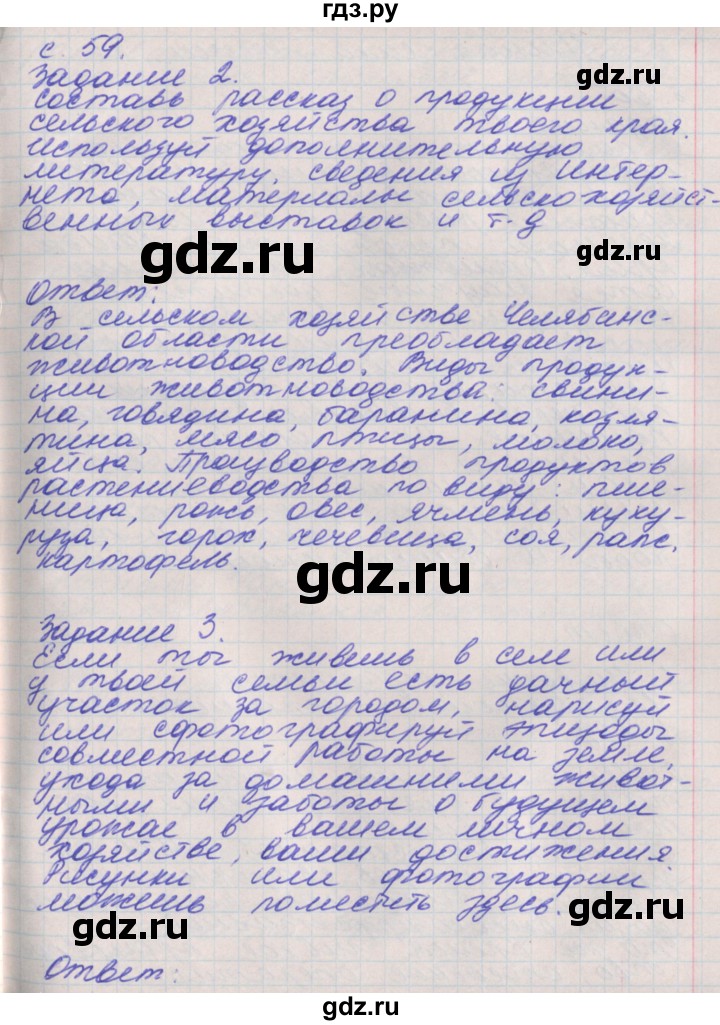 гдз.ру
с. 59.
Задание 2.
gdz.ru
составь рассказ о продукции
сельского хозяйства твоего края.
Используй дополнительную
литературу, сведения из Интер-
нета, материалы сельскохозяйст-
венных выставок и т.д
gdz.ru
gdz.ru
Ответ:
В сельском хозяйстве Челябинс-
кой области преобладает
животноводство. Виды продук-
ции животноводства: свини-
на, говядина, баранина, козля-
тина, мясо птицы, молоко,
яйца. Производство продуктов
растениеводства по виду: пше-
ница, рожь, овес, ячмень, куку-
руза, горох, чечевица, соя, рапс,
картофель.
gdz.ru
Задание 3.
Если ты живешь в селе или
у твоей семьи есть дачный
участок за городом, нарисуй
или сфотографируй эпизоды
совместной работы на земле,
ухода за домашними живот-
ными и заботы о будущем
урожае в вашем личном
хозяйстве, ваши достижения.
Рисунки или фотографии
можешь поместить здесь.
gdz.ru
gdz.ru
Ответ:
gdz.ru